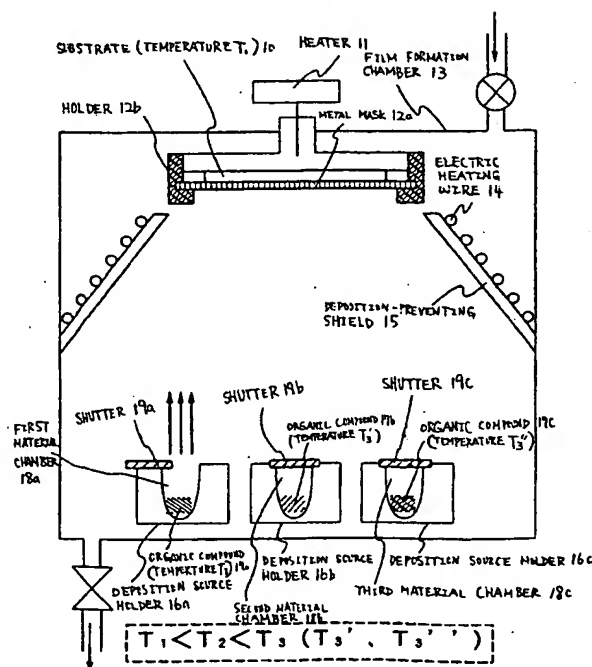 SUBSTRATE (TEMPERATURE T₁) 10
HEATER 11
FILM FORMATION
CHAMBER 13
HOLDER 12b
METAL MASK 12a
ELECTRIC
HEATING
WIRE 14
DEPOSITION-PREVENTING
SHIELD 15
SHUTTER 19a
SHUTTER 19b
SHUTTER 19c
FIRST
MATERIAL
CHAMBER
18a
ORGANIC COMPOUND 17b
(TEMPERATURE T₃')
ORGANIC COMPOUND 17c
(TEMPERATURE T₃'')
ORGANIC COMPOUND
(TEMPERTURE T₃) 17a
DEPOSITION SOURCE
HOLDER 16a
DEPOSITION SOURCE
HOLDER 16b
DEPOSITION SOURCE HOLDER 16c
SECOND MATERIAL
CHAMBER 18b
THIRD MATERIAL CHAMBER 18c
T₁<T₂<T₃ (T₃'、T₃'')